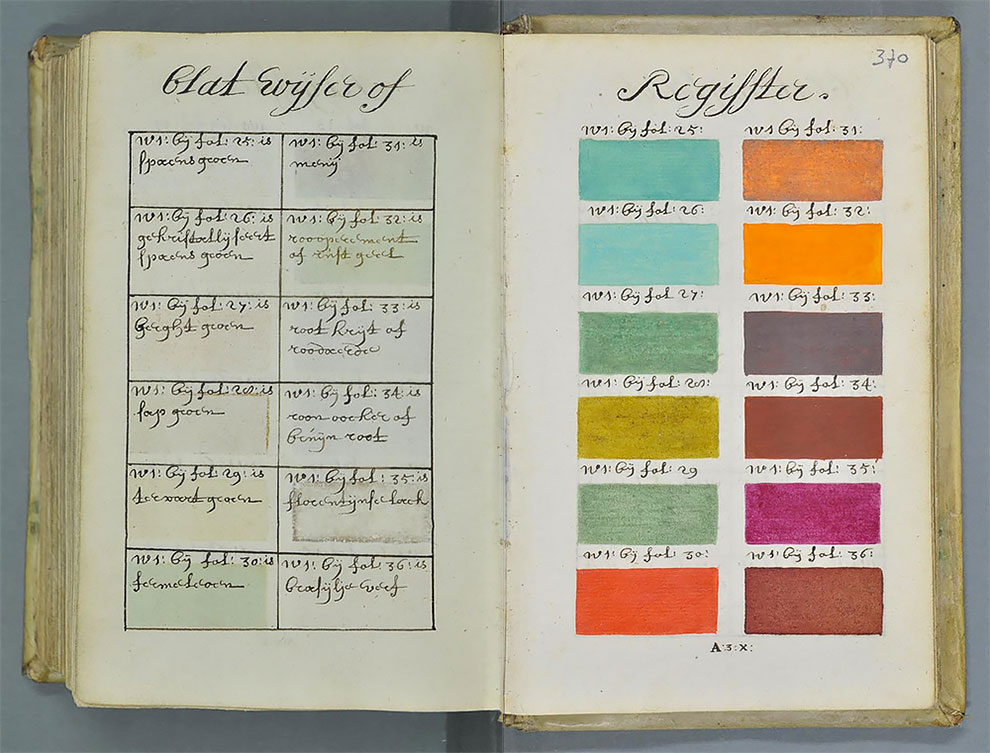 blat wÿser of
w1: bÿ fol: 25: is
spaens groen
w1: bÿ fol: 31: is
menÿ
w1: bÿ fol: 26: is
gekristallÿseert
spaens groen
w1: bÿ fol: 32: is
rooopercement
of rust geel
w1: bÿ fol: 27: is
berght groen
w1: bÿ fol: 33: is
root krÿt of
roodaerde
w1: bÿ fol: 28: is
sap groen
w1: bÿ fol: 34: is
roon oocker of
bruÿn root
w1: bÿ fol: 29: is
terwart groen
w1: bÿ fol: 35: is
florentÿnse lack
w1: bÿ fol: 30: is
fermeloen
w1: bÿ fol: 36: is
brasÿlje verf
370
Regisster.
w1: bÿ fol: 25:
w1 bÿ fol: 31:
w1: bÿ fol: 26:
w1: bÿ fol: 32:
w1: bÿ fol: 27:
w1: bÿ fol: 33:
w1: bÿ fol: 28:
w1: bÿ fol: 34:
w1: bÿ fol: 29
w1: bÿ fol: 35:
w1: bÿ fol: 30:
w1: bÿ fol: 36:
A:3:X: